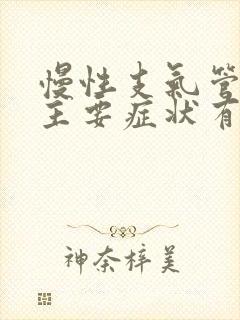 慢性支气管
主要症状有
神奈梓美